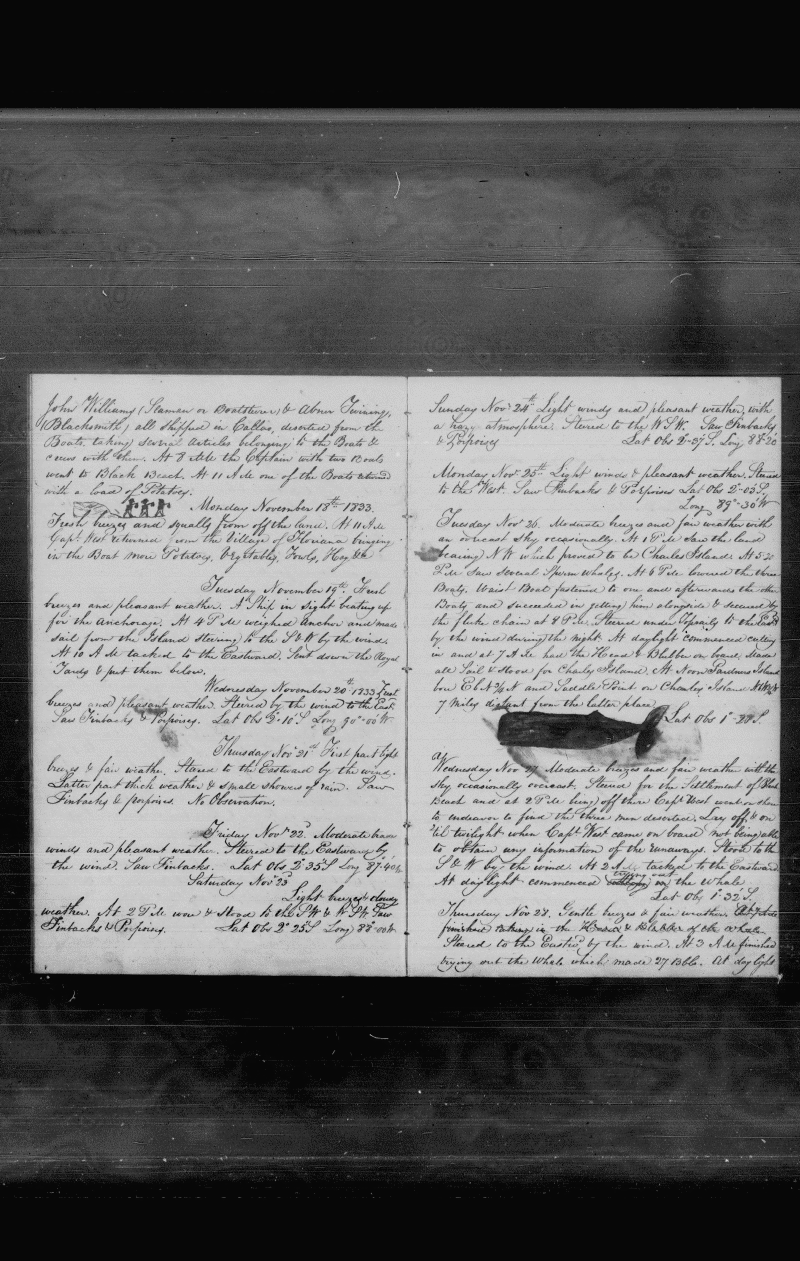 John Williams (Seaman or Boatsteerer) & Abner Twining,
(Blacksmith) all shipped in Callao, deserted from the
Boats, taking several articles belonging to the Boats &
crews with them. At 8 AM the Captain with two Boats
went to Black Beach. At 11 AM one of the Boats returned
with a load of Potatoes.
Monday November 18th 1833.
Fresh breezes and squally from off the land. At 11 AM
Capt West returned from the Village of Floriana bringing
in the Boat more Potatoes, Vegetables, Fowls, Hog &c
Tuesday November 19th. Fresh
breezes and pleasant weather. A Ship in sight beating up
for the anchorage. At 4 PM weighed Anchor and made
sail from the Island steering to the S & W by the wind.
At 10 AM tacked to the Eastward. Sent down the Royal
Yards & put them below.
Wednesday November 20th 1833 First
breezes and pleasant weather. Steered by the wind to the East
Saw Finbacks & Porpoises. Lat Obs 2°10' S Long 90°00' W
Thursday Nov 21st First part light
breezes & fair weather. Steered to the Eastward by the wind.
Latter part thick weather & small showers of rain. Saw
Finbacks & porpoises. No Observation.
Friday Novr 22d. Moderate
winds and pleasant weather. Steered to the Eastward by
the wind. Saw Finbacks. Lat Obs 2°35 S Long 89°40
Saturday Novr 23
Light breezes & cloudy
weather. At 2 PM wore & stood to the SW & WSW Saw
Finbacks & Porpoises. Lat Obs 2°25 S Long 88°00 W
Sunday Novr 24th Light winds and pleasant weather, with
a hazy atmosphere. Steered to the W.S.W. Saw Finbacks
& Porpoises Lat Obs 2-37 S. Long 88-20
Monday Novr 25th Light winds & pleasant weather. Steered
to the West. Saw Finbacks & Porpoises Lat Obs 2-03 S.
Long 89°-30 W
Tuesday Novr 26. Moderate breezes and fair weather with
an overcast sky occasionally. At 1 PM Saw the land
bearing NW which proved to be Charles Island. At 5-20
PM saw several Sperm Whales. At 6 PM lowered the three
Boats. Waist Boat fastened to one and afterwards the other
Boats and succeeded in getting him alongside & secured by
the fluke chain at 8 PM. Steered under Topsails to the East
by the wind during the night. At daylight commenced cutting
in and at 7 AM had the Head & Blubber on board. Made
all Sail & stood for Charles Island. At Noon Gardners Island
bore E b N ¾ N and Saddle Point on Charles Island
7 Miles distant from the latter place
Lat Obs 1°-28 S.
Wednesday Nov 27 Moderate breezes and fair weather with the
sky occasionally overcast. Steered for the Settlement of Black
Beach and at 2 PM being off there Capt West went on shore
to endeavor to find the three men deserted. Lay off & on
'til twilight when Capt West came on board not being able
to obtain any information of the runaways. Stood to the
S & W by the wind. At 2 AM tacked to the Eastward
trying out
At daylight commenced the whale.
Lat Obs 1°-32 S.
Thursday Nov 28. Gentle breezes & fair weather.
finished in the Head & Blubber of the whale
Steered to the Eastwd by the wind. At 3 AM finished
trying out the Whale which made 27 Bbls. At daylight